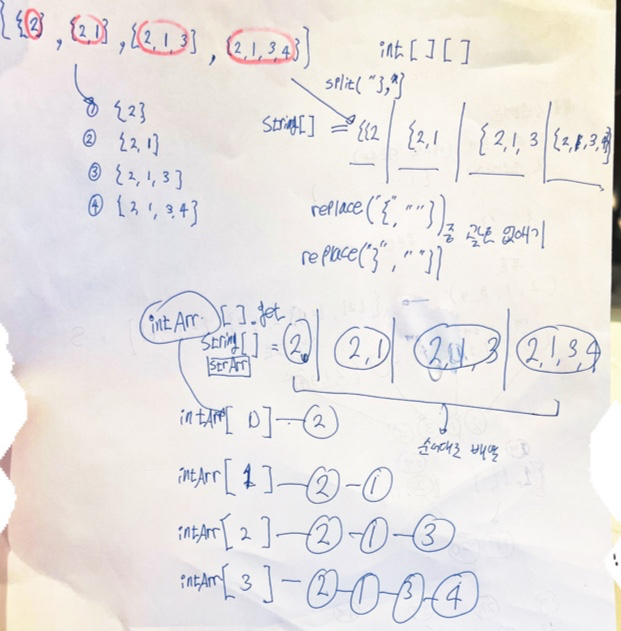 {{2}, {2,1}, {2,1,3}, {2,1,3,4}}
int[][]
split("},")
① {2}
② {2,1}
③ {2,1,3}
④ {2,1,3,4}
String[] = {{2 | {2,1 | {2,1,3 | {2,1,3,4}
replace("{", "")
replace("}", "")
중괄호 없애기
intArr[].get
String[] = 2 | 2,1 | 2,1,3 | 2,1,3,4
strArr
순서대로 배열
intArr[0]-2
intArr[1]-2-1
intArr[2]-2-1-3
intArr[3]-2-1-3-4